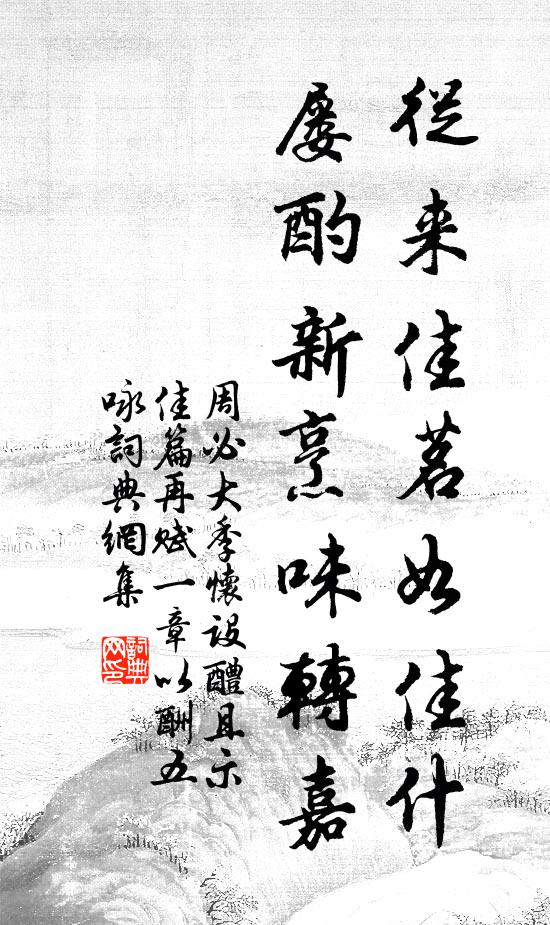 從来佳茗如佳什
屡酌新烹味轉嘉
周必大季懷設醴且示
佳篇再赋一章以酬五
咏詞典網集
詞典
网印